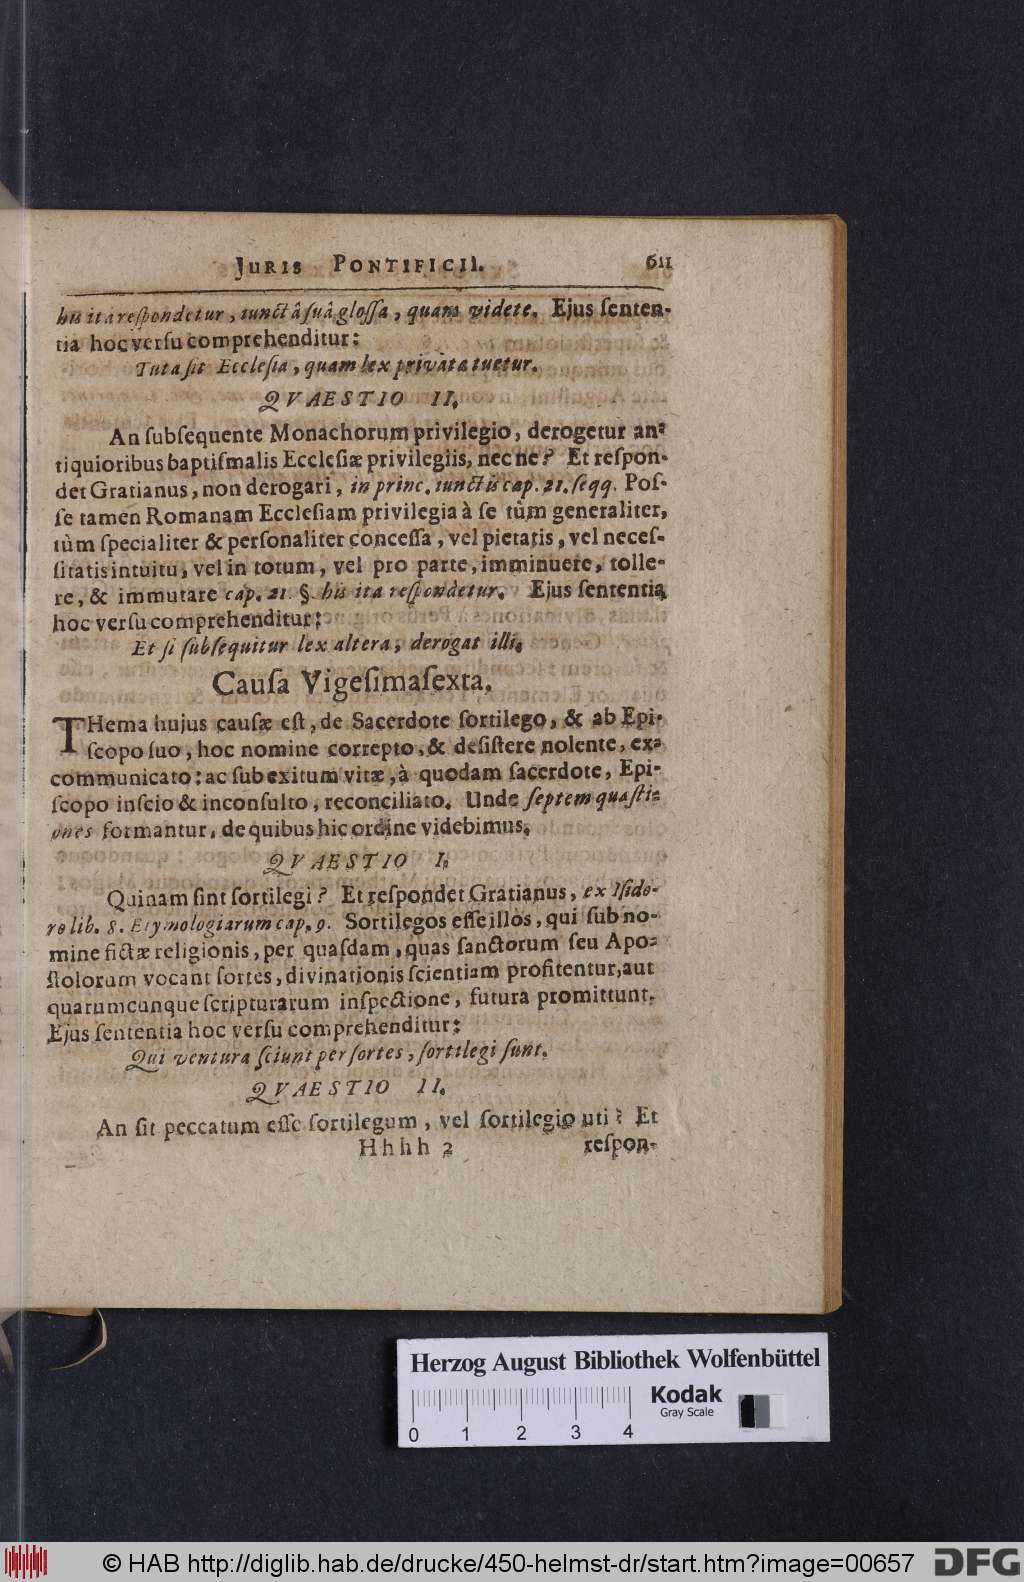 JURIS PONTIFICII. 611
his ita respondetur, iunctâ suâ glossa, quam videte. Ejus senten-
tia hoc versu comprehenditur:
Tuta sit Ecclesia, quam lex privàta tuetur.
QVAESTIO II.
An subsequente Monachorum privilegio, derogetur an-
tiquioribus baptismalis Ecclesiæ privilegiis, nec ne? Et respon-
det Gratianus, non derogari, in princ. iunctis cap. 21. seqq. Pos-
se tamen Romanam Ecclesiam privilegia à se tùm generaliter,
tùm specialiter & personaliter concessa, vel pietatis, vel neces-
sitatis intuitu, vel in totum, vel pro parte, imminuere, tolle-
re, & immutare cap. 21. §. his ita respondetur. Ejus sententia
hoc versu comprehenditur:
Et si subsequitur lex altera, derogat illi.
Causa Vigesimasexta.
THema hujus causæ est, de Sacerdote sortilego, & ab Epi-
scopo suo, hoc nomine correpto, & desistere nolente, ex-
communicato: ac sub exitum vitæ, à quodam sacerdote, Epi-
scopo inscio & inconsulto, reconciliato. Unde septem quæsti-
ones formantur, de quibus hic ordine videbimus.
QVAESTIO I.
Quinam sint sortilegi? Et respondet Gratianus, ex Isido-
ro lib. 8. Etymologiarum cap. 9. Sortilegos esse illos, qui sub no-
mine fictæ religionis, per quasdam, quas sanctorum seu Apo-
stolorum vocant sortes, divinationis scientiam profitentur, aut
quarumcunque scripturarum inspectione, futura promittunt.
Ejus sententia hoc versu comprehenditur:
Qui ventura sciunt per sortes, sortilegi sunt.
QVAESTIO II.
An sit peccatum esse sortilegum, vel sortilegio uti? Et
Hhhh 2 respon-
Herzog August Bibliothek Wolfenbüttel
Kodak
Gray Scale
0 1 2 3 4
© HAB http://diglib.hab.de/drucke/450-helmst-dr/start.htm?image=00657 DFG